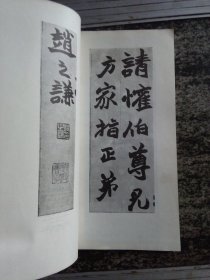 請懽伯尊兄
方家指正弟
趙之謙